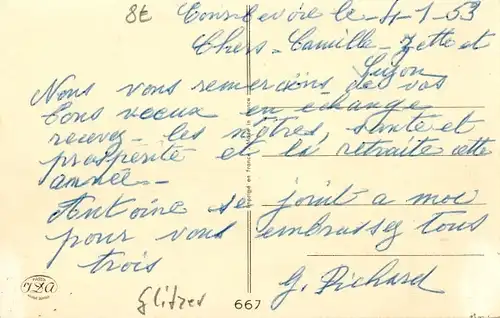 8€
le 4-1-53
Chers - Camille - Zette et
Suzon
Nous vous remercions de vos
bons vœux en échange
recevez - les nôtres, santé et
prospérité et la retraite cette
année -
Antoine se joint a moi
pour vous embrassez tous
trois
G. Richard
Glitzer
667